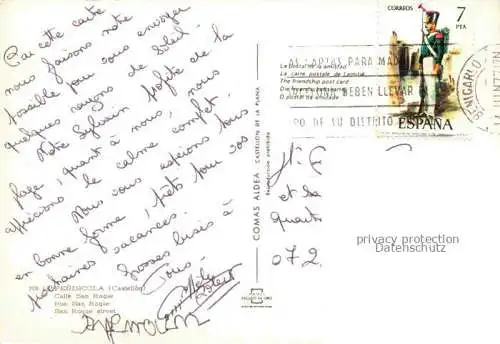 Par cette carte
nous faisons notre
possible pour vous envoyer
quelques rayons de soleil
Notre Sylvain profite de la
plage, quant à nous, nous
apprécions le calme complet.
Nous vous espérons tous
en bonne forme, prêts pour vos
prochaines vacances.
Grosses bises à
Tous -
PEÑISCOLA (Castellón)
Calle San Roque
Rue San Roque
San Roque street
COMAS ALDEA - CASTELLÓN DE LA PLANA
Reproducción prohibida
CORREOS
7
PTA
ESPAÑA
La postal de la amistad
La carte postale de l'amitié
The friendship post card
O postal da amizade
CARTAS PARA MADRID
DEBEN LLEVAR EL
DE SU DISTRITO
BENICARLO
et la
072
privacy protection
Datenschutz